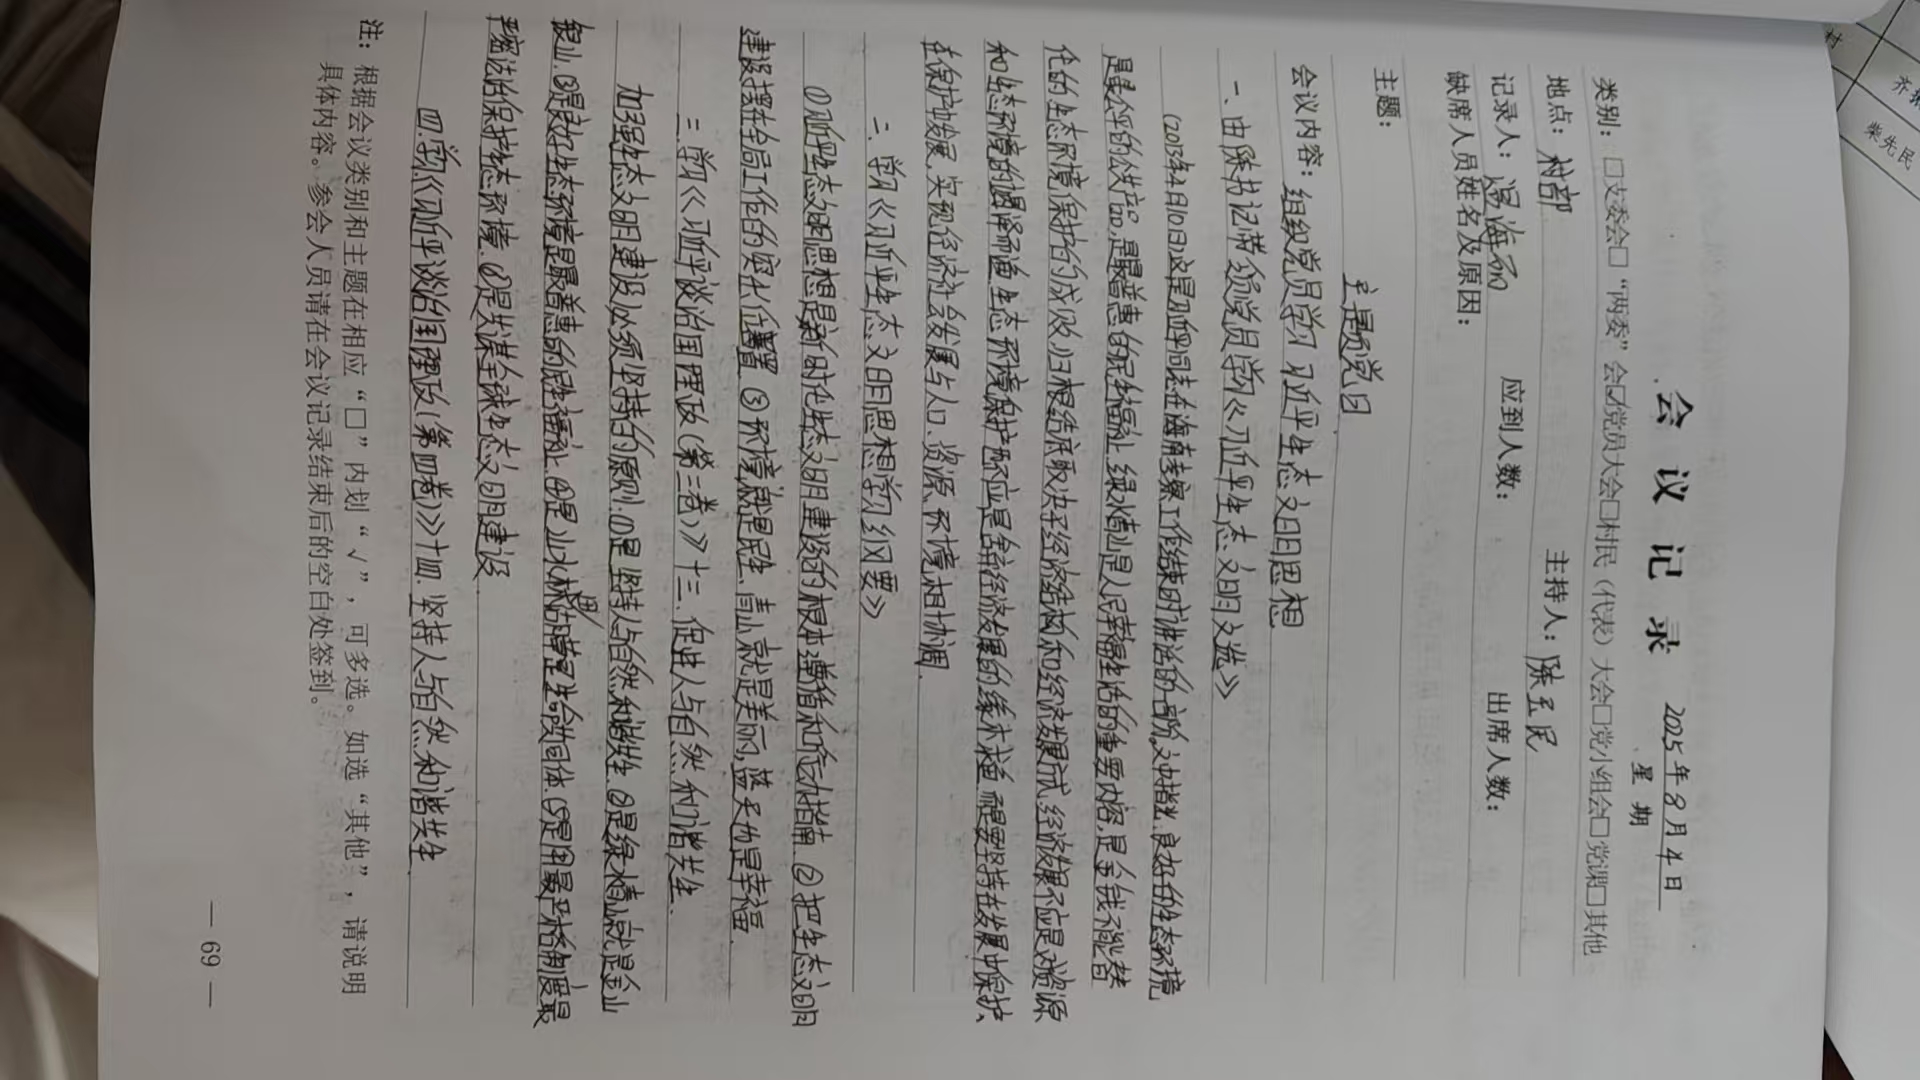 会议记录
2025年8月4日
星期
类别：□支委会□“两委”会☑党员大会□村民（代表）大会□党小组会□党课□其他
地点：村部 主持人：陈玉民
记录人：冯海 应到人数： 出席人数：
缺席人员姓名及原因：
主题：
主题党日
会议内容：组织党员学习习近平生态文明思想
一、由陈书记带领党员学习《习近平生态文明文选》
(2013年4月10日)这是习近平同志在海南考察工作结束时讲话的一部分，文中指出，良好的生态环境
是最公平的公共产品，是最普惠的民生福祉，绿水青山是人民幸福生活的重要内容，是金钱不能代替
的生态环境保护的成败，归根结底取决于经济结构和经济发展方式，经济发展不应是对资源
和生态环境的竭泽而渔，生态环境保护不应是舍弃经济发展的缘木求鱼，而是要坚持在发展中保护、
在保护中发展，实现经济社会发展与人口、资源、环境相协调．
二、学习《习近平生态文明思想学习纲要》
①习近平生态文明思想是新时代生态文明建设的根本遵循和行动指南 ②把生态文明
建设摆在全局工作的突出位置 ③环境就是民生，青山就是美丽，蓝天也是幸福．
三、学习《习近平谈治国理政(第三卷)》十三．促进人与自然和谐共生．
加强生态文明建设必须坚持的原则：①是坚持人与自然和谐共生．②是绿水青山就是金山
银山．③是良好生态环境是最普惠的民生福祉．④是山水林田湖草是生命共同体．⑤是用最严格制度最
严密法治保护生态环境．⑥是共谋全球生态文明建设
四．学习《习近平谈治国理政(第四卷)》十四．坚持人与自然和谐共生．
注：根据会议类别和主题在相应“□”内划“√”，可多选。如选“其他”，请说明
具体内容。参会人员请在会议记录结束后的空白处签到。
— 69 —
柴先民